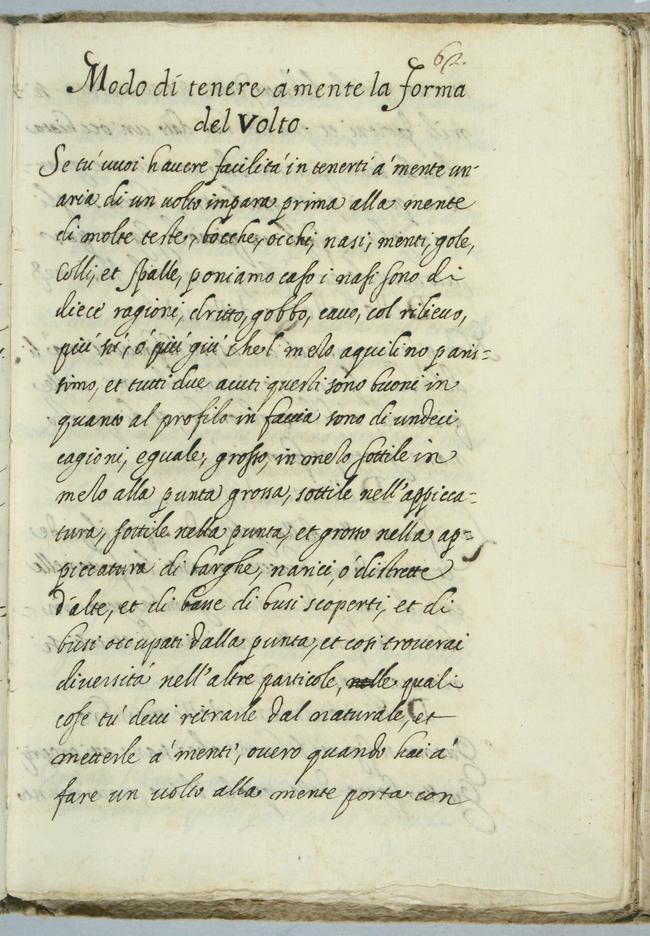 62.
Modo di tenere á mente la forma
del Volto.
Se tu' vuoi havere facilitá in tenerti á mente un'
aria di un volto impara prima alla mente
di molte teste, bocche, occhi, nasi, menti, gole,
Colli, et spalle, poniamo caso i nasi sono di
diece ragioni, dritto, gobbo, cavo, col rilievo,
piú sú, ó piú giú che'l mezo aquilino paris=
simo, et tutti due acuti questi sono buoni in
quanto al profilo in faccia sono di undeci
cagioni, eguale, grosso, in mezo sottile in
mezo alla punta grossa, sottile nell'appicca=
tura, sottile nella punta, et grosso nella ap=
piccatura di larghe, narici, ó distrette
d'alte, et di basse di busi scoperti, et di
busi occupati dalla punta, et cosi troverai
diversitá nell'altre particole, nelle quali
cose tú devi ritrarle dal naturale, et
metterle á menti, overo quando hai á
fare un volto alla mente porta con